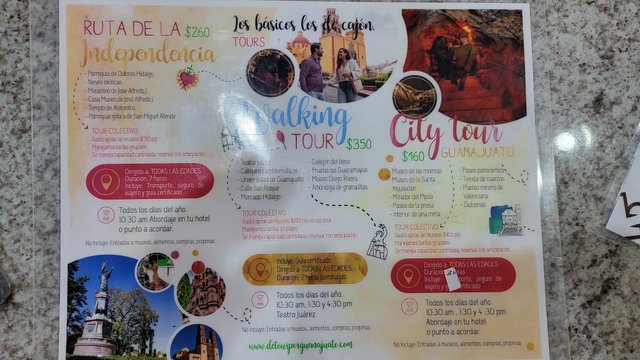 RUTA DE LA $260
Independencia
- Parroquia de Dolores Hidalgo
- Nieves exóticas
- Mausoleo de José Alfredo J.
- Casa Museo de José Alfredo J.
- Templo de Atotonilco
- Parroquia gótica de San Miguel Allende
TOUR COLECTIVO
Gasto aprox. de museos $130 p/p
Manejamos tarifas grupales.
Se maneja capacidad controlada, reservar con anticipación.
Dirigido a: TODAS LAS EDADES
Duración: 7 horas
Incluye: Transporte, seguro de
viajero y guía certificado
Todos los días del año.
10:30 am Abordaje en tu hotel
o punto a acordar.
No Incluye: Entradas a museos, alimentos, compras, propinas.
Los básicos los de cajón.
TOURS
Walking
TOUR $350
- Teatro Juárez
- Callejones emblemáticos
- Universidad de Guanajuato
- Calle San Roque
- Mercado Hidalgo
- Callejón del beso
- Prueba las Guacamayas
- Museo Diego Rivera
- Alhóndiga de granaditas
TOUR COLECTIVO
Manejamos tarifas grupales.
Se maneja capacidad controlada, reservar con anticipación.
Incluye: Guía certificado
Dirigido a: TODAS LAS EDADES
Duración: 2 horas
Todos los días del año.
10:30 am, 1:30 y 4:30 pm
Teatro Juárez
No Incluye: Entradas a museos, alimentos, compras, propinas.
www.detourporguanajuato.com
City tour
$160 GUANAJUATO
- Museo de las momias
- Museo de la Santa
inquisición
- Mirador del Pípila
- Paseo de la presa
- Interior de una mina
- Paseo panorámico
- Tienda de cuarzos
- Pueblo minero de
Valenciana
- Dulcerías
TOUR COLECTIVO
Gasto aprox. de museos $160 p/p
Manejamos tarifas grupales.
Se maneja capacidad controlada, reservar con anticipación.
Dirigido a: TODAS LAS EDADES
seguro de
viajero y guía certificado
Todos los días del año.
10:30 am, 1:30 y 4:30 pm
Abordaje en tu hotel
o punto a acordar.
No Incluye: Entradas a museos, alimentos, compras, propinas.